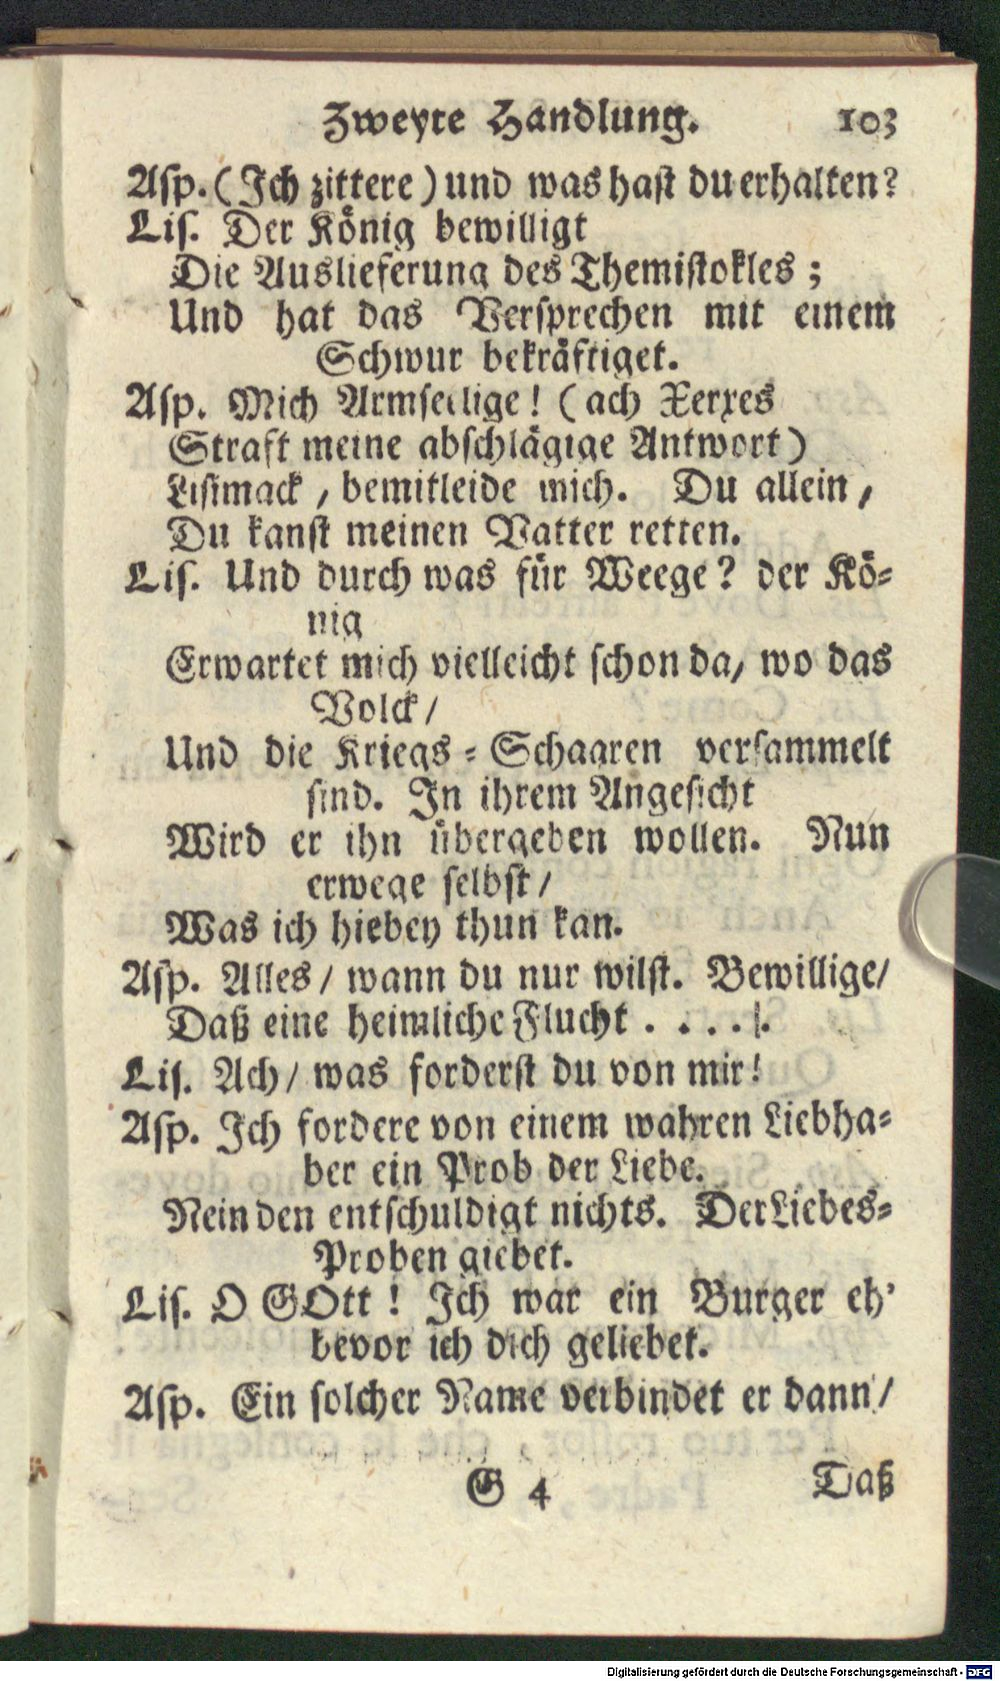 Zweyte Handlung. 103
Asp. (Ich zittere) und was hast du erhalten?
Lis. Der König bewilligt
Die Auslieferung des Themistokles;
Und hat das Versprechen mit einem
Schwur bekräftiget.
Asp. Mich Armseelige! (ach Xerxes
Straft meine abschlägige Antwort)
Lisimack, bemitleide mich. Du allein,
Du kanst meinen Vatter retten.
Lis. Und durch was für Weege? der Kö-
nig
Erwartet mich vielleicht schon da/ wo das
Volck/
Und die Kriegs-Schaaren versammelt
sind. In ihrem Angesicht
Wird er ihn übergeben wollen. Nun
erwege selbst/
Was ich hiebey thun kan.
Asp. Alles/ wann du nur wilst. Bewillige/
Daß eine heimliche Flucht . . . . .
Lis. Ach/ was forderst du von mir!
Asp. Ich fordere von einem wahren Liebha-
ber ein Prob der Liebe.
Nein den entschuldigt nichts. Der Liebes-
Proben giebet.
Lis. O GOtt! Ich war ein Burger eh'
bevor ich dich geliebet.
Asp. Ein solcher Name verbindet er dann/
G 4 Daß
Digitalisierung gefördert durch die Deutsche Forschungsgemeinschaft - DFG